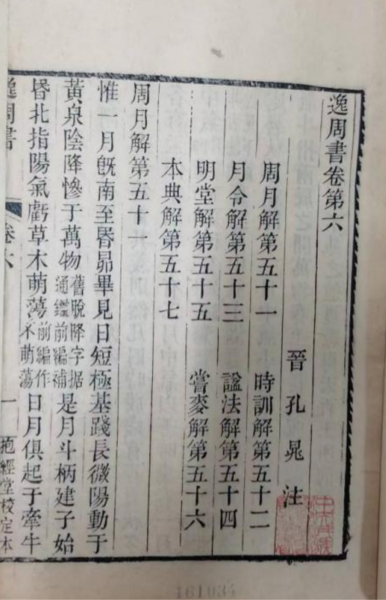 逸周書卷第六
晉孔晁注
周月解第五十一 時訓解第五十二
月令解第五十三 諡法解第五十四
明堂解第五十五 嘗麥解第五十六
本典解第五十七
周月解第五十一
惟一月既南至昏昴畢見日短極基踐長微陽動于
黃泉陰降慘于萬物舊脫降字据通鑑前編補是月斗柄建子始
昏北指陽氣虧草木萌蕩前編作不萌蕩日月俱起于牽牛
逸周書 卷六 一 抱經堂校定本
161034